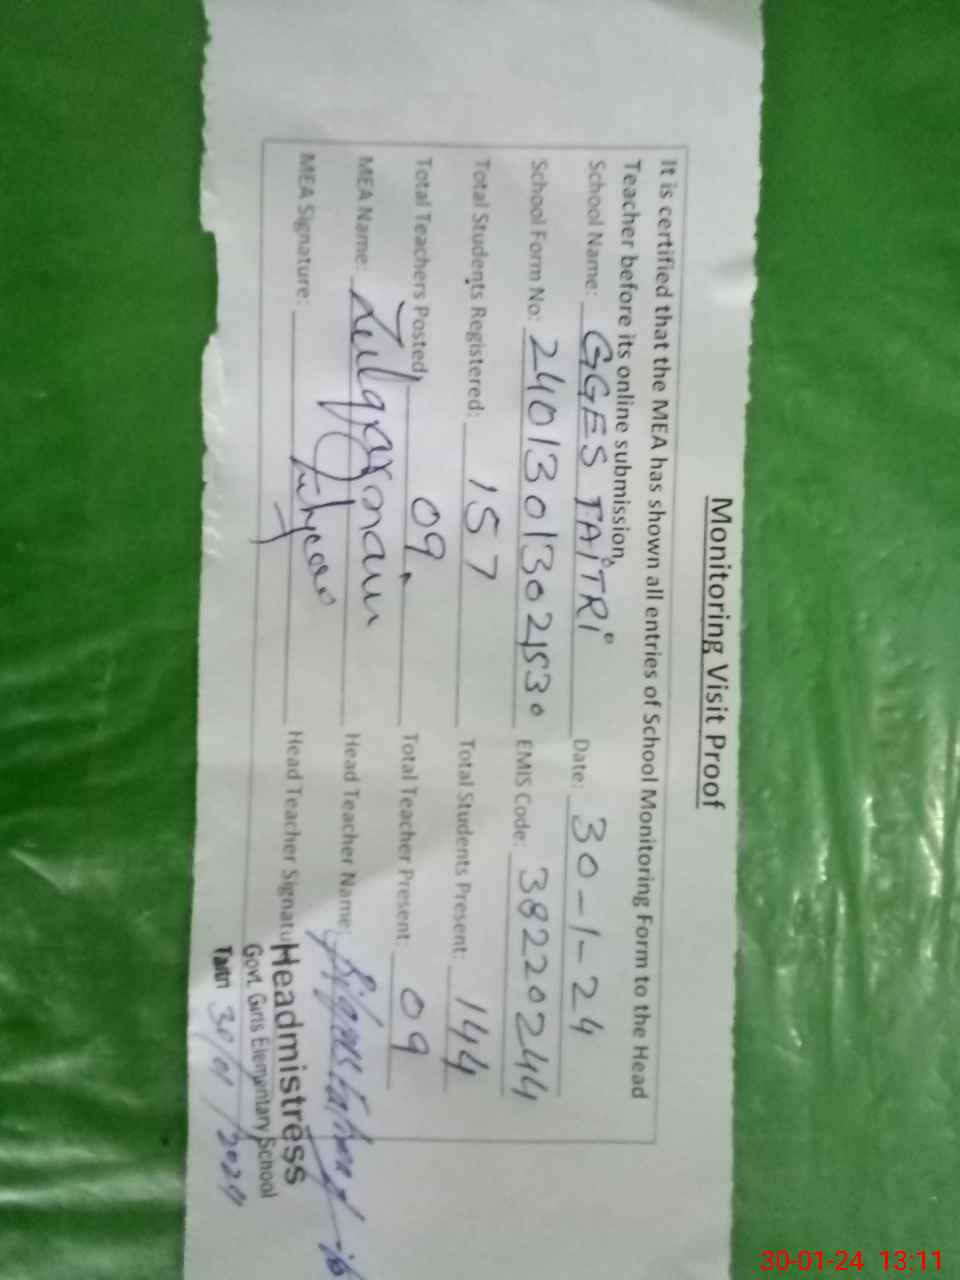 Monitoring Visit Proof
It is certified that the MEA has shown all entries of School Monitoring Form to the Head
Teacher before its online submission.
School Name: GGES TAITRI Date: 30-1-24
School Form No: EMIS Code: 38220244
Total Students Registered: 157 Total Students Present: 144
Total Teachers Posted: 09 Total Teacher Present: 09
MEA Name: Head Teacher Name:
MEA Signature: Head Teacher Signatu
Headmistress
Govt. Girls Elementary School
Taitri 30/01/2024
30-01-24 13:11